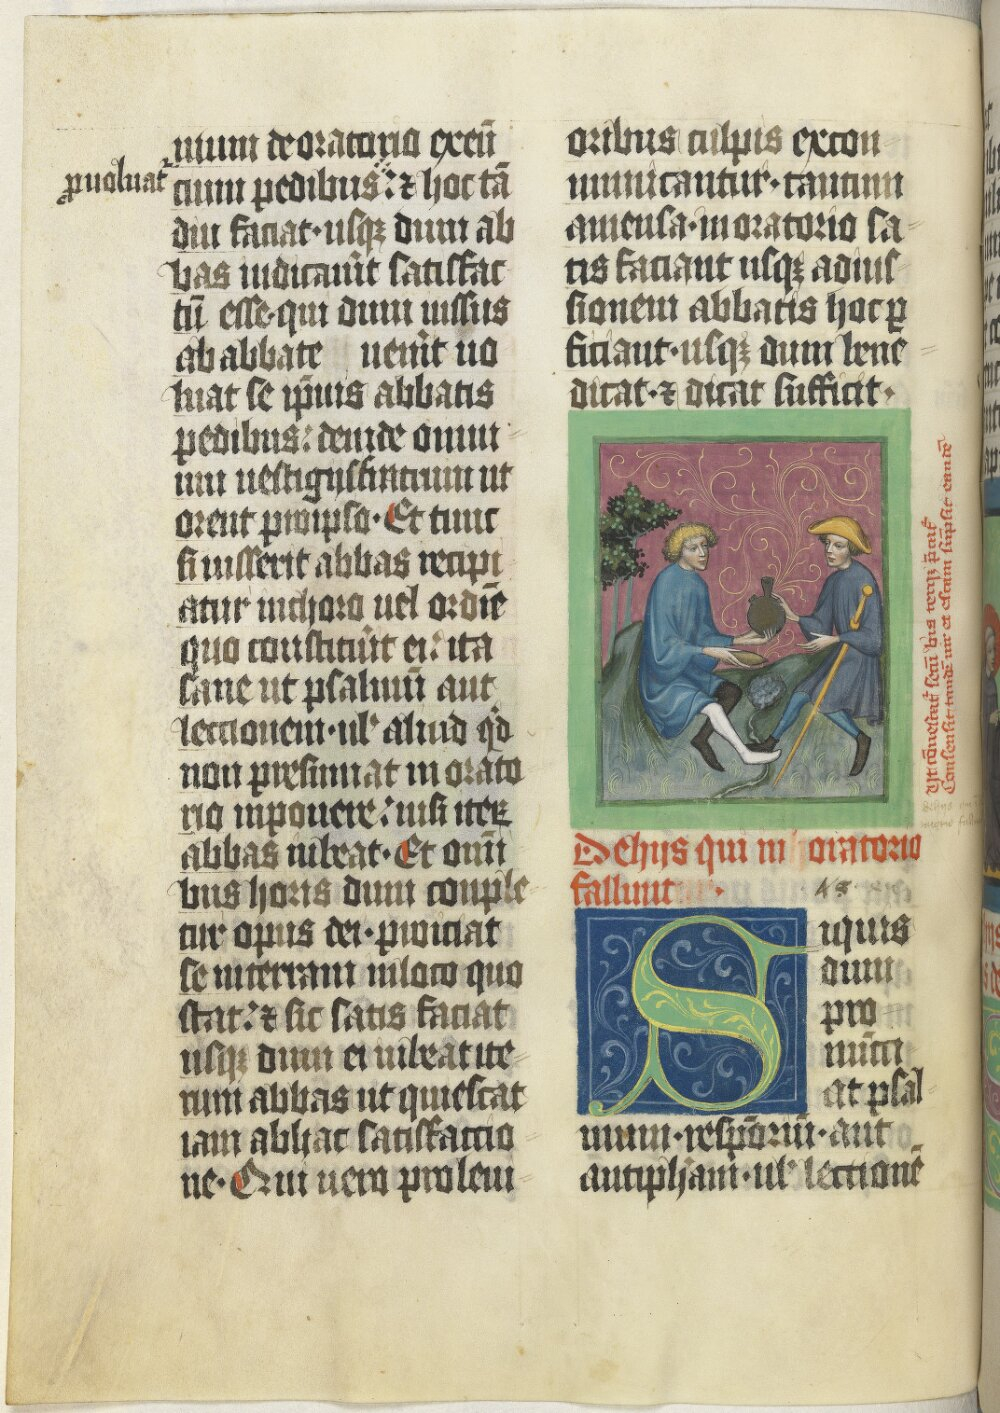 nium de oratorio exeū
ꝓuoluat᷑
tium pedibus: ⁊ hoc tā
diu faciat · usqꝫ dum ab
bas iudicaūit satisfac
tū esse · qui dum iussus
ab abbate uenīt uo
luat se ip̄uis abbatis
pedibus: deinde omni
um uestigijs fratrum ut
orent pro ipso · Et tunc
si iusserit abbas recipi
atur in choro uel ordīe
quo constituīt ei: ita
sane ut psalmū aut
lectionem · ul᷑ aliud qd
non presumat in orato
rio inponere: nisi iteꝝ
abbas iubeat · Et omī
bus horis dum conple
tur opus dei · proiciat
se in terram in loco quo
stat: ⁊ sic satis faciat
usqꝫ dum ei iubeat ite
rum abbas ut quiescat
iam ab hac satisfactio
ne · Qui uero pro leui
oribus culpis excon
municantur · tantum
a mensa · in oratorio sa
tis faciant usqꝫ ad ius
sionem abbatis hoc ꝑ
ficiant · usqꝫ dum bene
dicat · ⁊ dicat sufficit ·
De hijs qui in oratorio
fallunt ·
Siquis
dum
pro
nūcci
at psal
mum · respōriū · aut
antiphām · ul᷑ lectionē